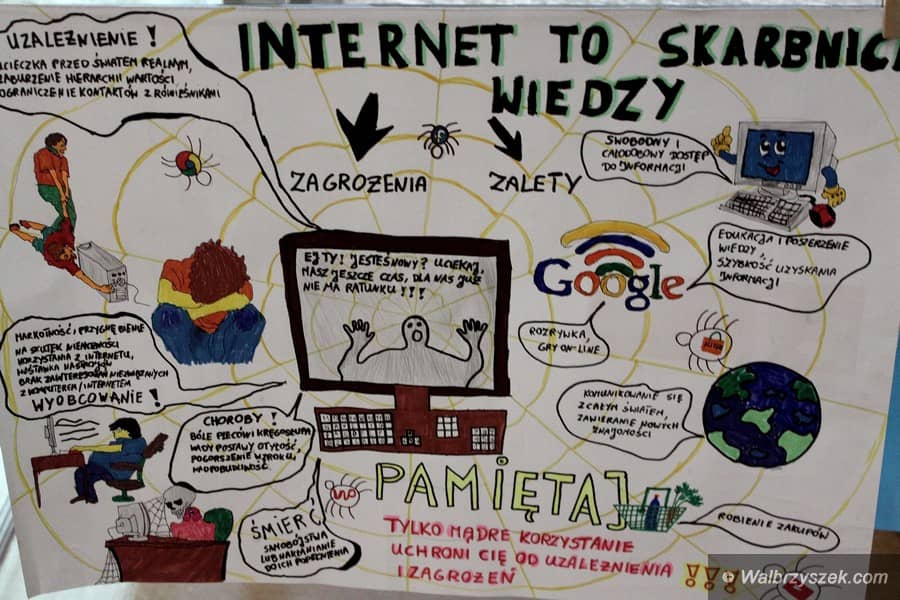 INTERNET TO SKARBNIC
WIEDZY
UZALEŻNIENIE !
UCIECZKA PRZED ŚWIATEM REALNYM,
ZABURZENIE HIERARCHII WARTOŚCI,
OGRANICZENIE KONTAKTÓW Z RÓWIEŚNIKAMI
ZAGROŻENIA
ZALETY
SWOBODNY I
CAŁODOBOWY DOSTĘP
DO INFORMACJI
EJ TY! JESTEŚ NOWY? UCIEKAJ,
MASZ JESZCZE CZAS, DLA NAS JUŻ
NIE MA RATUNKU !!!
Google
EDUKACJA I POSZERZENIE
WIEDZY,
SZYBKOŚĆ UZYSKANIA
INFORMACJI
ROZRYWKA,
GRY ON-LINE
MARKOTNOŚĆ, PRZYGNĘBIENIE
NA SKUTEK NIEMOŻNOŚCI
KORZYSTANIA Z INTERNETU,
HUŚTAWKA NASTROJÓW
BRAK ZAINTERESOWAŃ NIEZWIĄZANYCH
Z KOMPUTEREM/INTERNETEM
WYOBCOWANIE !
KOMUNIKOWANIE SIĘ
Z CAŁYM ŚWIATEM,
ZAWIERANIE NOWYCH
ZNAJOMOŚCI
CHOROBY !
BÓLE PLECÓW I KRĘGOSŁUPA
WADY POSTAWY OTYŁOŚĆ,
POGORSZENIE WZROKU,
NADPOBUDLIWOŚĆ
ŚMIERĆ
SAMOBÓJSTWA
LUB NAKŁANIANIE
DO ICH POPEŁNIENIA
PAMIĘTAJ
TYLKO MĄDRE KORZYSTANIE
UCHRONI CIĘ OD UZALEŻNIENIA
I ZAGROŻEŃ !!!
ROBIENIE ZAKUPÓW
Walbrzyszek.com